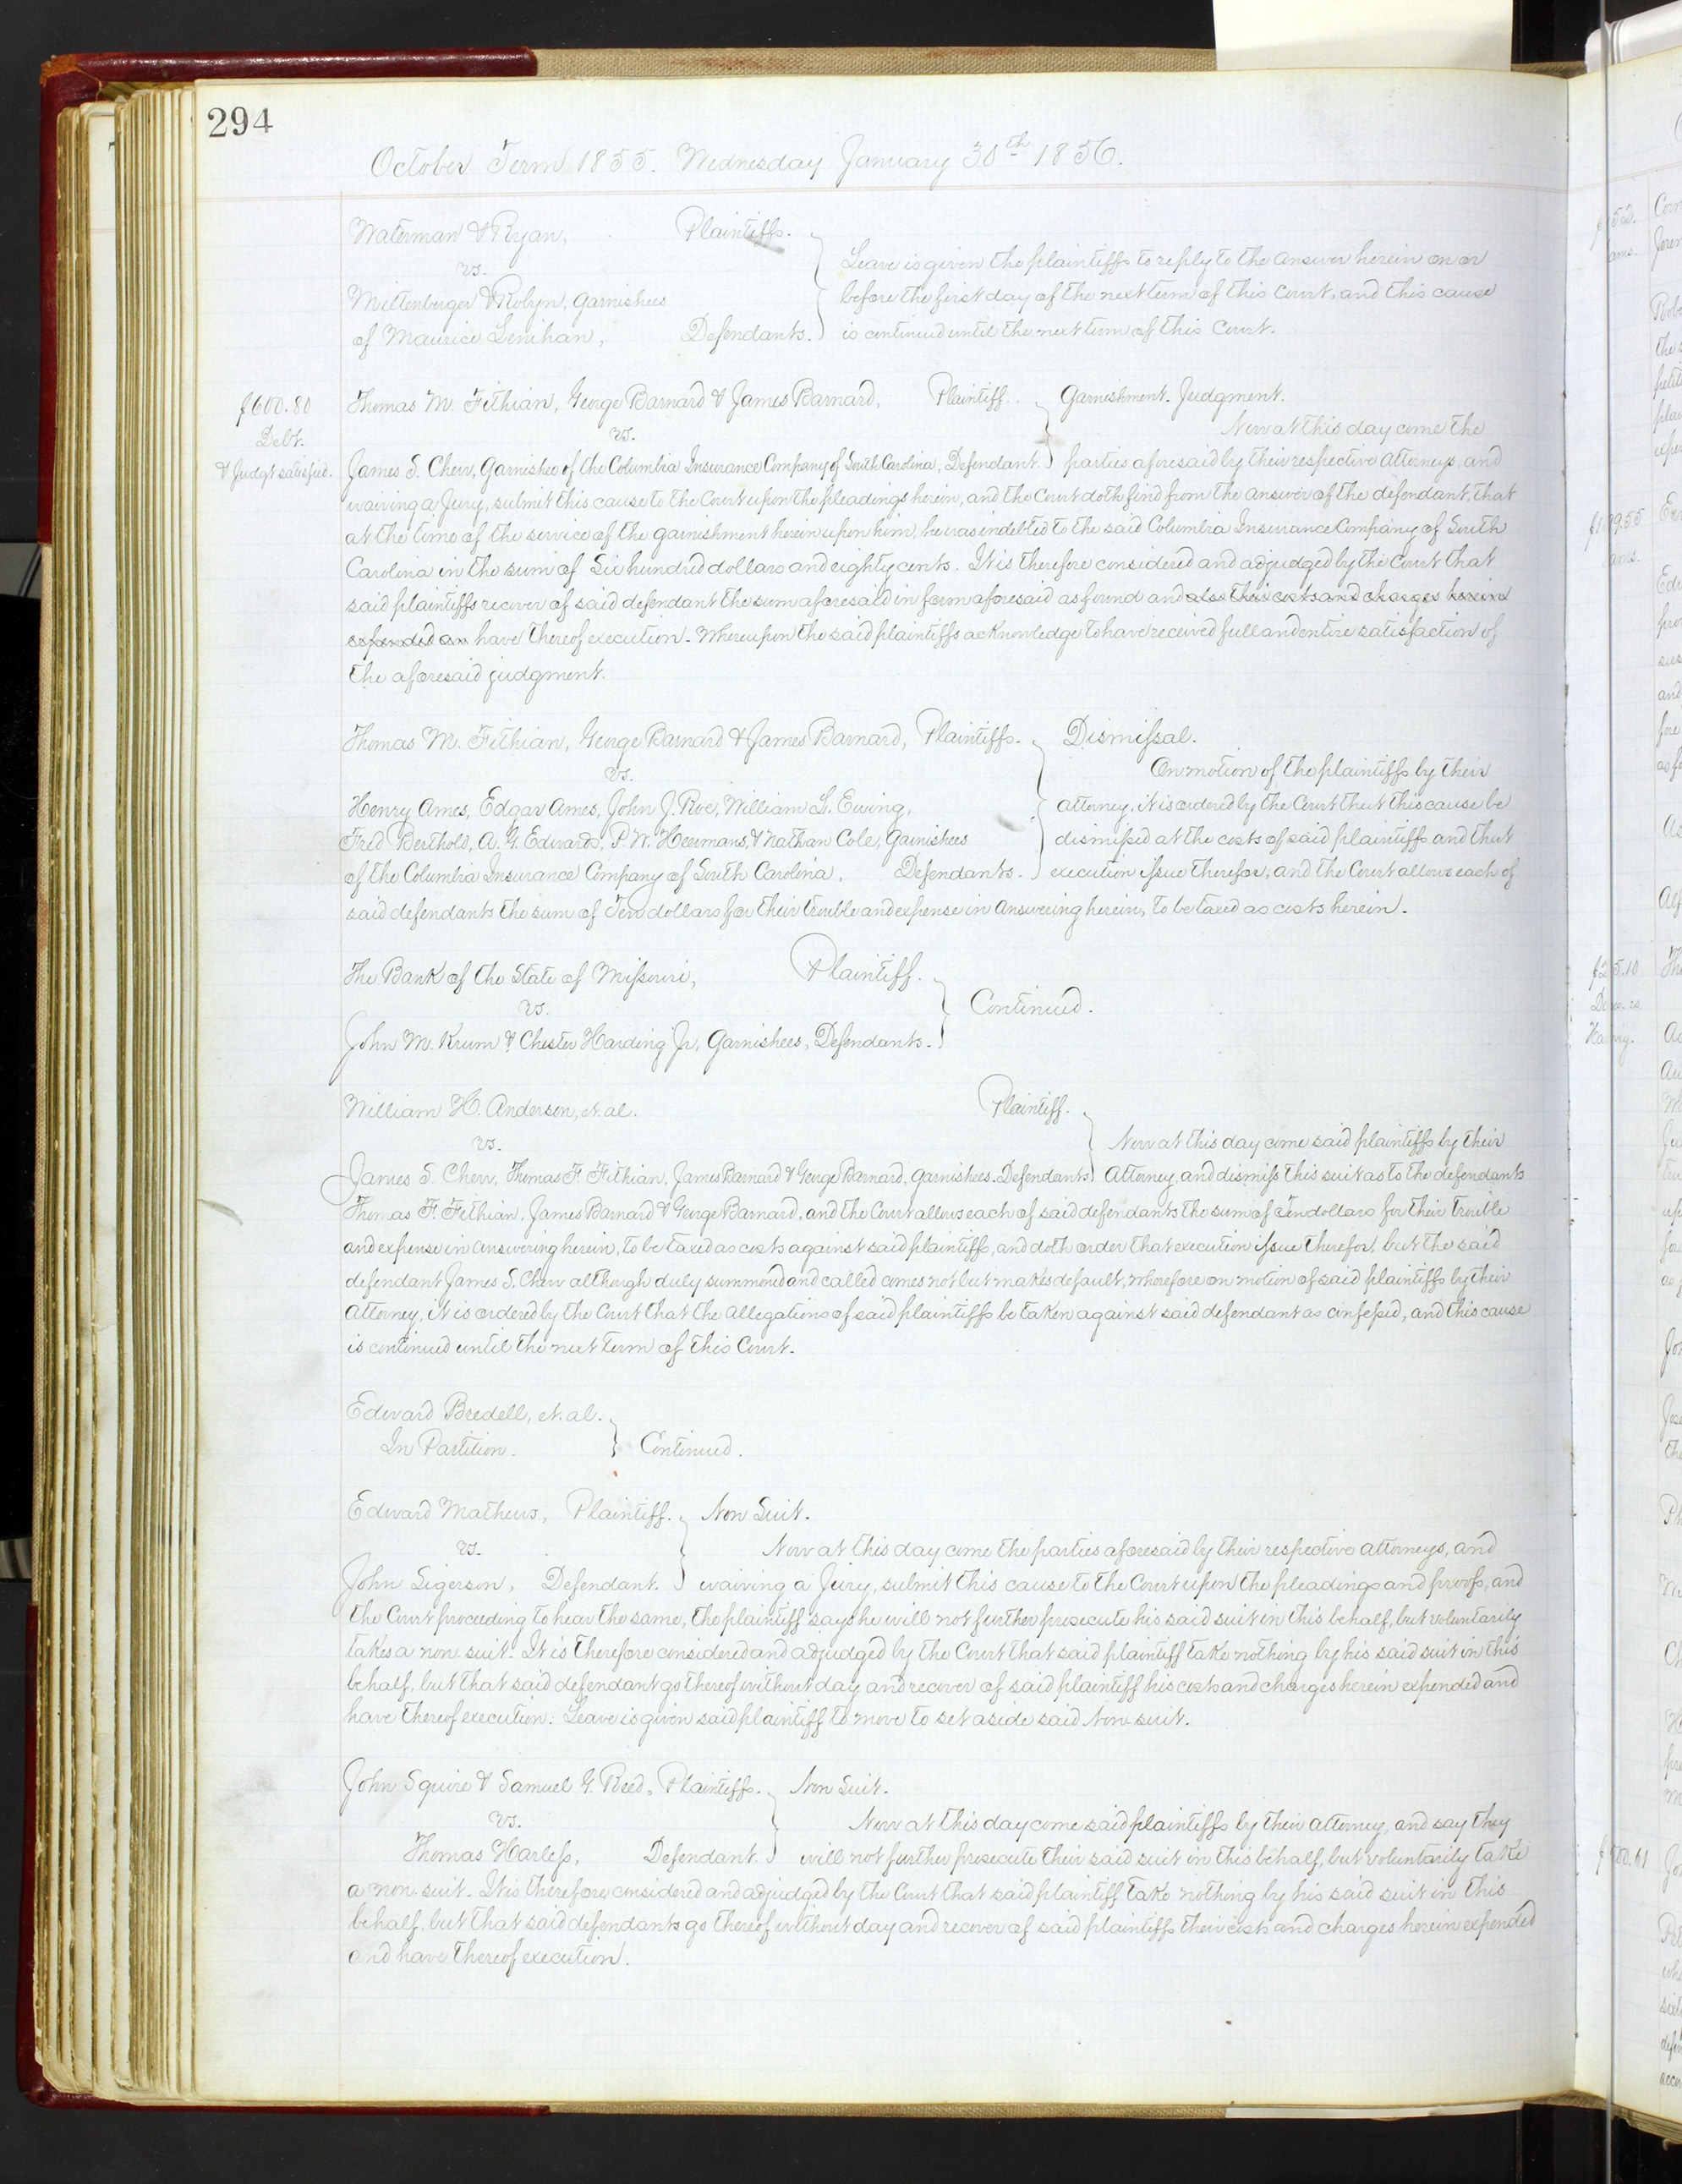 294
October Term 1855. Wednesday January 30th 1856.
Waterman & Ryan, Plaintiffs.
vs.
Miltenberger & Robyn, Garnishees
of Maurice Lenihan, Defendants.
Leave is given the plaintiffs to reply to the answer herein on or
before the first day of the next term of this Court, and this cause
is continued until the next term of this Court.
$600.80
Debt.
& Judgt satisfied.
Thomas M. Fithian, George Barnard & James Barnard, Plaintiff.
vs.
James S. Chew, Garnishee of the Columbia Insurance Company of South Carolina, Defendant.
Garnishment. Judgment.
Now at this day come the
parties aforesaid by their respective attorneys, and
waiving a Jury, submit this cause to the Court upon the pleadings herein, and the Court doth find from the answer of the defendant, that
at the time of the service of the garnishment herein upon him, he was indebted to the said Columbia Insurance Company of South
Carolina in the sum of Six hundred dollars and eighty cents. It is therefore considered and adjudged by the Court that
said plaintiffs recover of said defendant the sum aforesaid in form aforesaid as found and also their costs and charges herein
expended an have thereof execution. Whereupon the said plaintiffs acknowledge to have received full and entire satisfaction of
the aforesaid judgment.
Thomas M. Fithian, George Barnard & James Barnard, Plaintiffs.
vs.
Henry Ames, Edgar Ames, John J. Roe, William L. Ewing,
Fred Berthold, A. G. Edwards, P. W. Heermans, & Nathan Cole, Garnishees
of the Columbia Insurance Company of South Carolina, Defendants.
Dismissal.
On motion of the plaintiffs by their
attorney, it is ordered by the Court that this cause be
dismissed at the costs of said plaintiffs and that
execution issue therefor, and the Court allows each of
said defendants the sum of Ten dollars for their trouble and expense in answering herein, to be taxed as costs herein.
The Bank of the State of Missouri, Plaintiff.
vs.
John M. Krum & Chester Harding Jr, Garnishees, Defendants.
Continued.
William H. Anderson, et. al. Plaintiff.
vs.
James S. Chew, Thomas F. Fithian, James Barnard & George Barnard, garnishees. Defendants
Now at this day come said plaintiffs by their
Attorney, and dismiss this suit as to the defendants
Thomas F. Fithian, James Barnard & George Barnard, and the Court allows each of said defendants the sum of ten dollars for their trouble
and expense in answering herein, to be taxed as costs against said plaintiffs, and doth order that execution issue therefor, but the said
defendant James S. Chew although duly summoned and called comes not but makes default, wherefore on motion of said plaintiffs by their
Attorney, it is ordered by the Court that the allegations of said plaintiffs be taken against said defendant as confessed, and this cause
is continued until the next term of this Court.
Edward Bredell, et. al.
In Partition.
Continued.
Edward Mathews, Plaintiff.
vs.
John Sigerson, Defendant.
Non Suit.
Now at this day come the parties aforesaid by their respective attorneys, and
waiving a Jury, submit this cause to the Court upon the pleadings and proofs, and
the Court proceeding to hear the same, the plaintiff says he will not further prosecute his said suit in this behalf, but voluntarily
takes a non suit. It is therefore considered and adjudged by the Court that said plaintiff take nothing by his said suit in this
behalf, but that said defendant go thereof without day and recover of said plaintiff his costs and charges herein expended and
have thereof execution. Leave is given said plaintiff to move to set aside said Non suit.
John Squire & Samuel G. Reed, Plaintiffs.
vs.
Thomas Harless, Defendant.
Non Suit.
Now at this day come said plaintiffs by their attorney, and say they
will not further prosecute their said suit in this behalf, but voluntarily take
a non suit. It is therefore considered and adjudged by the Court that said plaintiff take nothing by his said suit in this
behalf, but that said defendants go thereof without day and recover of said plaintiffs their costs and charges herein expended
and have thereof execution.